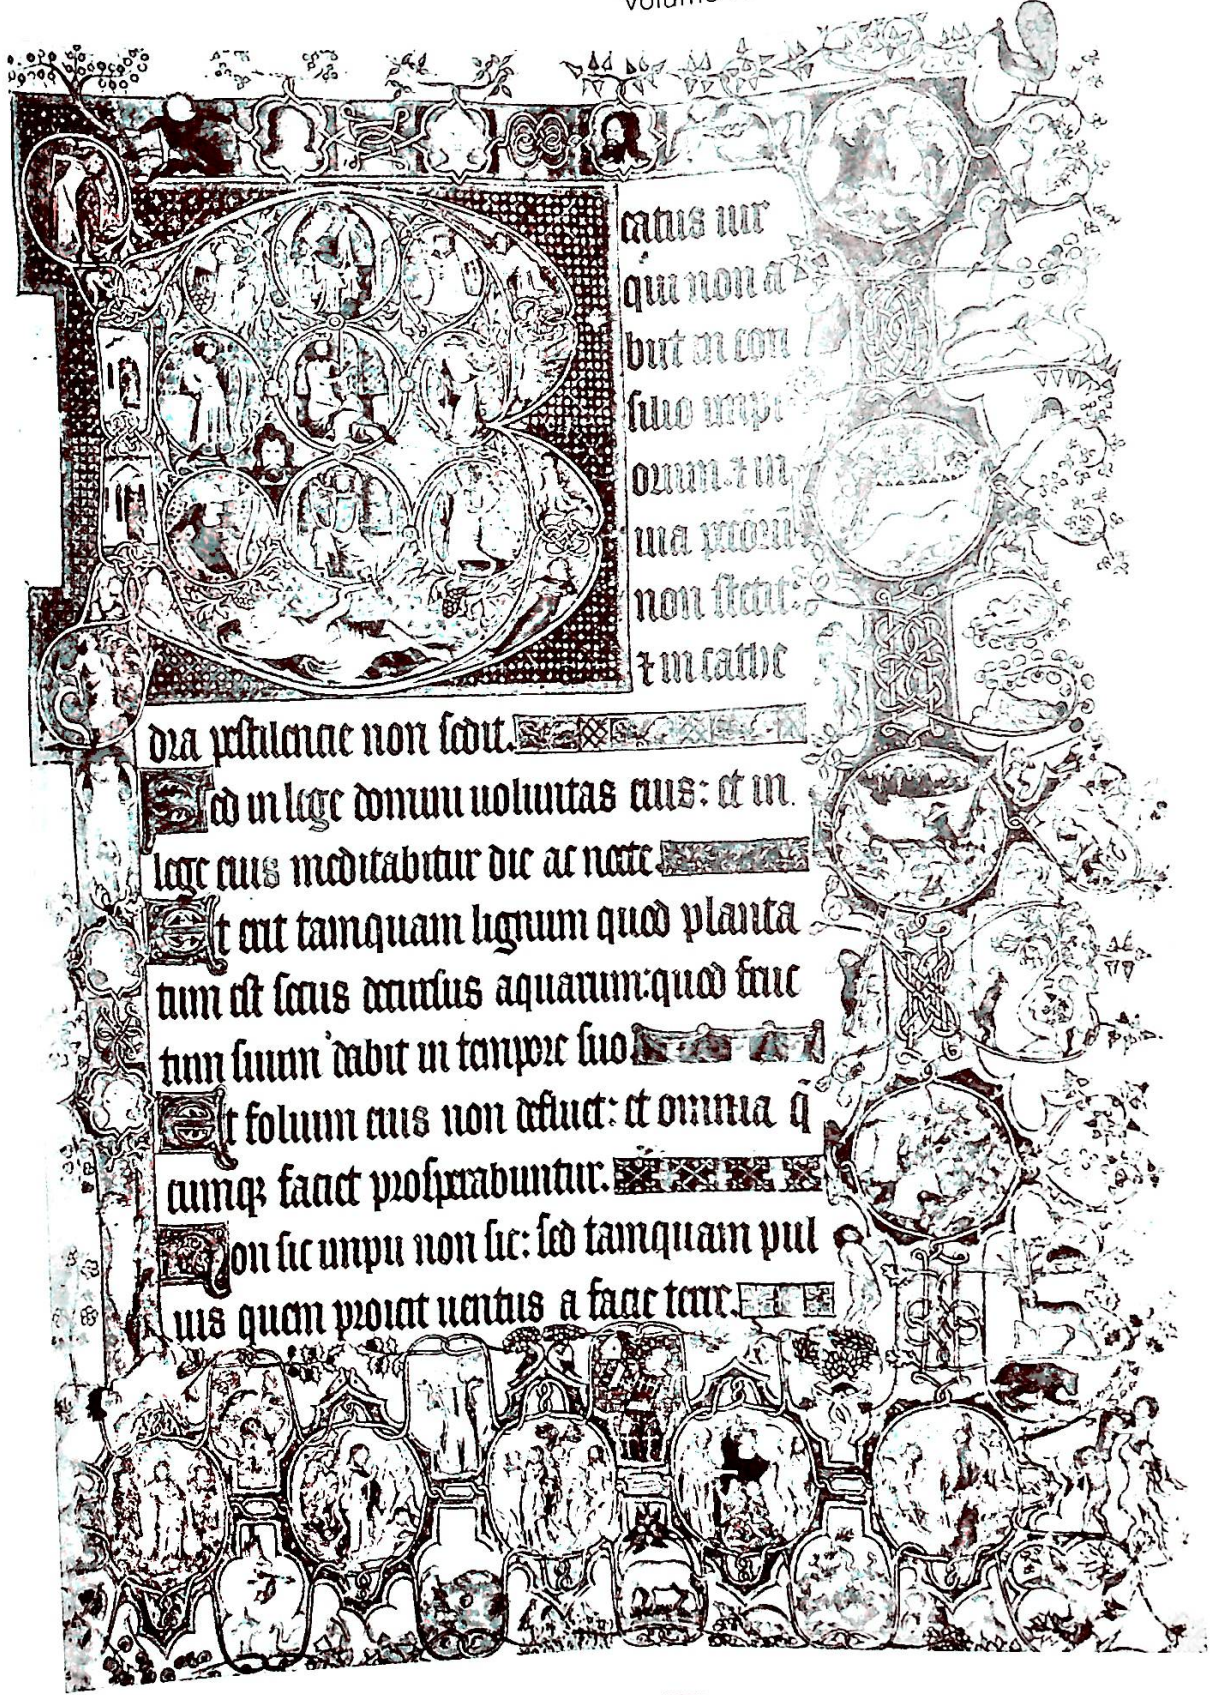 volume
Beatus uir
qui non a
biit in con
silio impi
orum. ⁊ in
uia pc̄corū
non stetit:
⁊ in cathe
dra pestilencie non sedit.
Sed in lege domini uoluntas eius: et in
lege eius meditabitur die ac nocte.
Et erit tamquam lignum quod planta
tum est secus decursus aquarum: quod fruc
tum suum dabit in tempore suo
Et folium eius non defluet: et omnia q̄
cumq; faciet prosperabuntur.
Non sic impii non sic: sed tamquam pul
uis quem proicit uentus a facie terre.